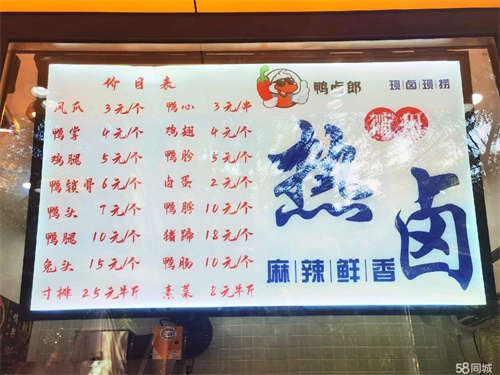 价目表
鸭卤郎
现卤现捞
凤爪 3元/个 鸭心 3元/串
鸭掌 4元/个 鸡翅 4元/个
鸡腿 5元/个 鸭胗 5元/个
鸭锁骨 6元/个 卤蛋 2元/个
鸭头 7元/个 鸭脖 10元/个
鸭腿 10元/个 猪蹄 18元/个
兔头 15元/个 鸭肠 10元/个
寸排 25元半斤 素菜 8元半斤
热卤
麻辣鲜香
58同城